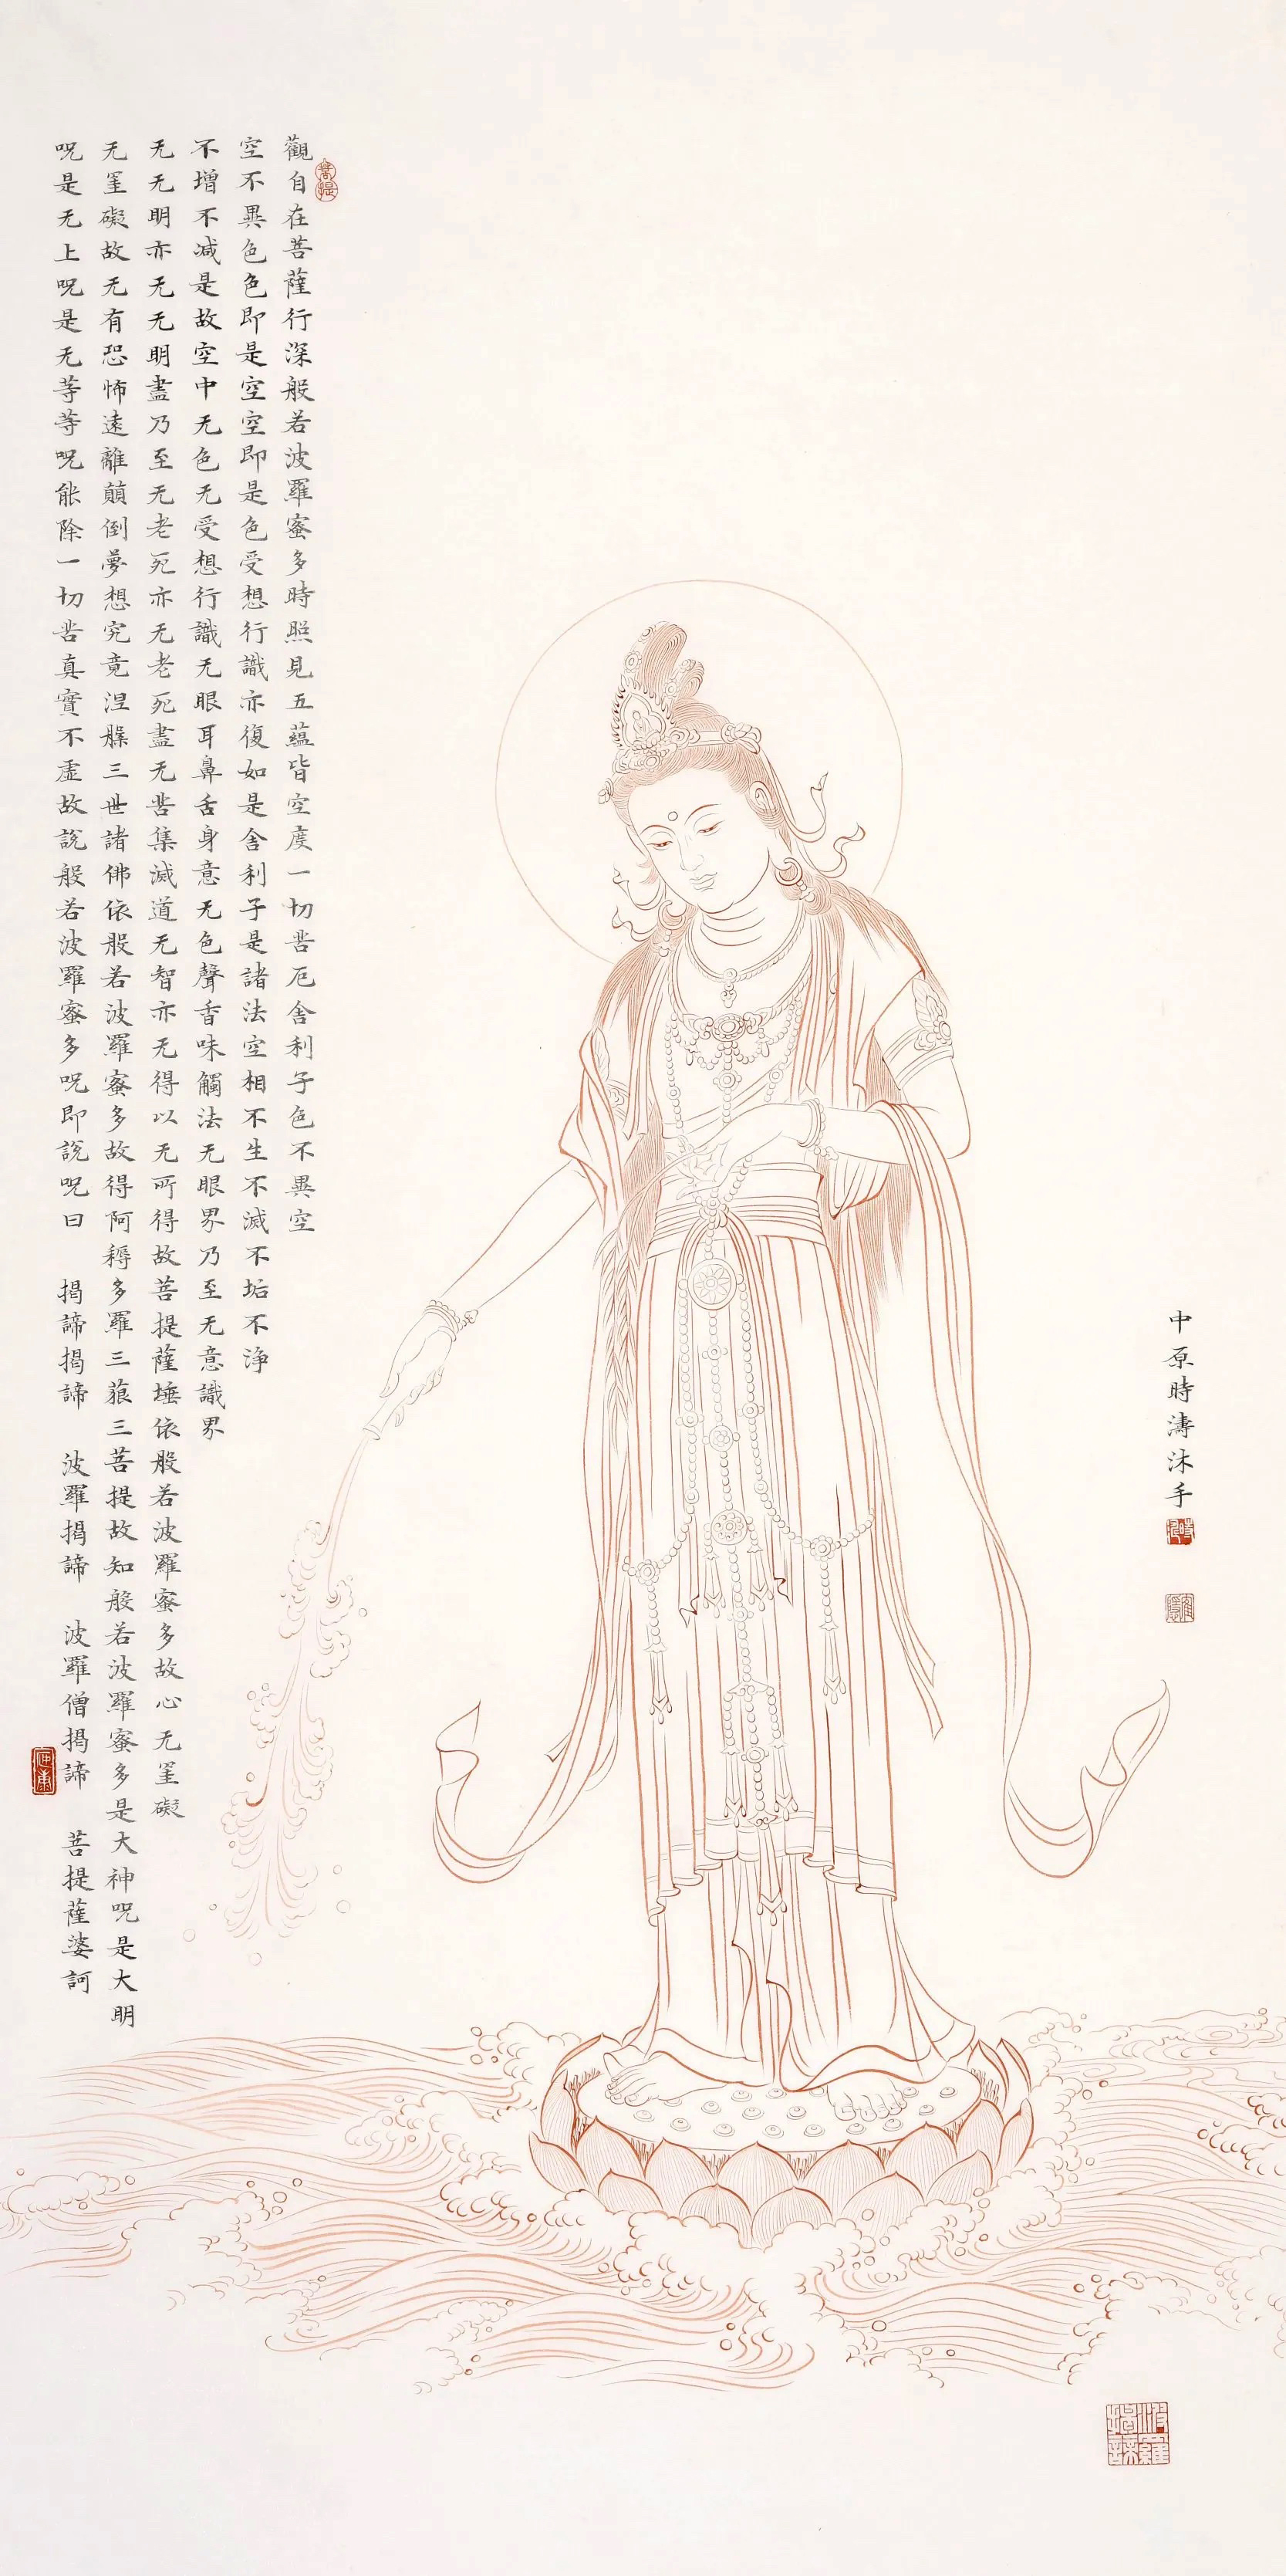 觀自在菩薩行深般若波羅蜜多時照見五蘊皆空度一切苦厄舍利子色不異空
空不異色色即是空空即是色受想行識亦復如是舍利子是諸法空相不生不滅不垢不浄
不增不減是故空中无色无受想行識无眼耳鼻舌身意无色聲香味觸法无眼界乃至无意識界
无无明亦无无明盡乃至无老死亦无老死盡无苦集滅道无智亦无得以无所得故菩提薩埵依般若波羅蜜多故心无罣礙
无罣礙故无有恐怖遠離顛倒夢想究竟涅槃三世諸佛依般若波羅蜜多故得阿耨多羅三藐三菩提故知般若波羅蜜多是大神呪是大明
呪是无上呪是无等等呪能除一切苦真實不虛故說般若波羅蜜多呪即說呪曰 揭諦揭諦 波羅揭諦 波羅僧揭諦 菩提薩婆訶
中原時濤沐手
菩提
波羅揭諦